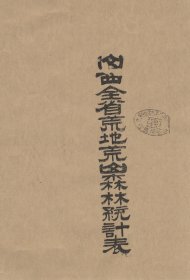 山西全省荒地荒山森林統計表